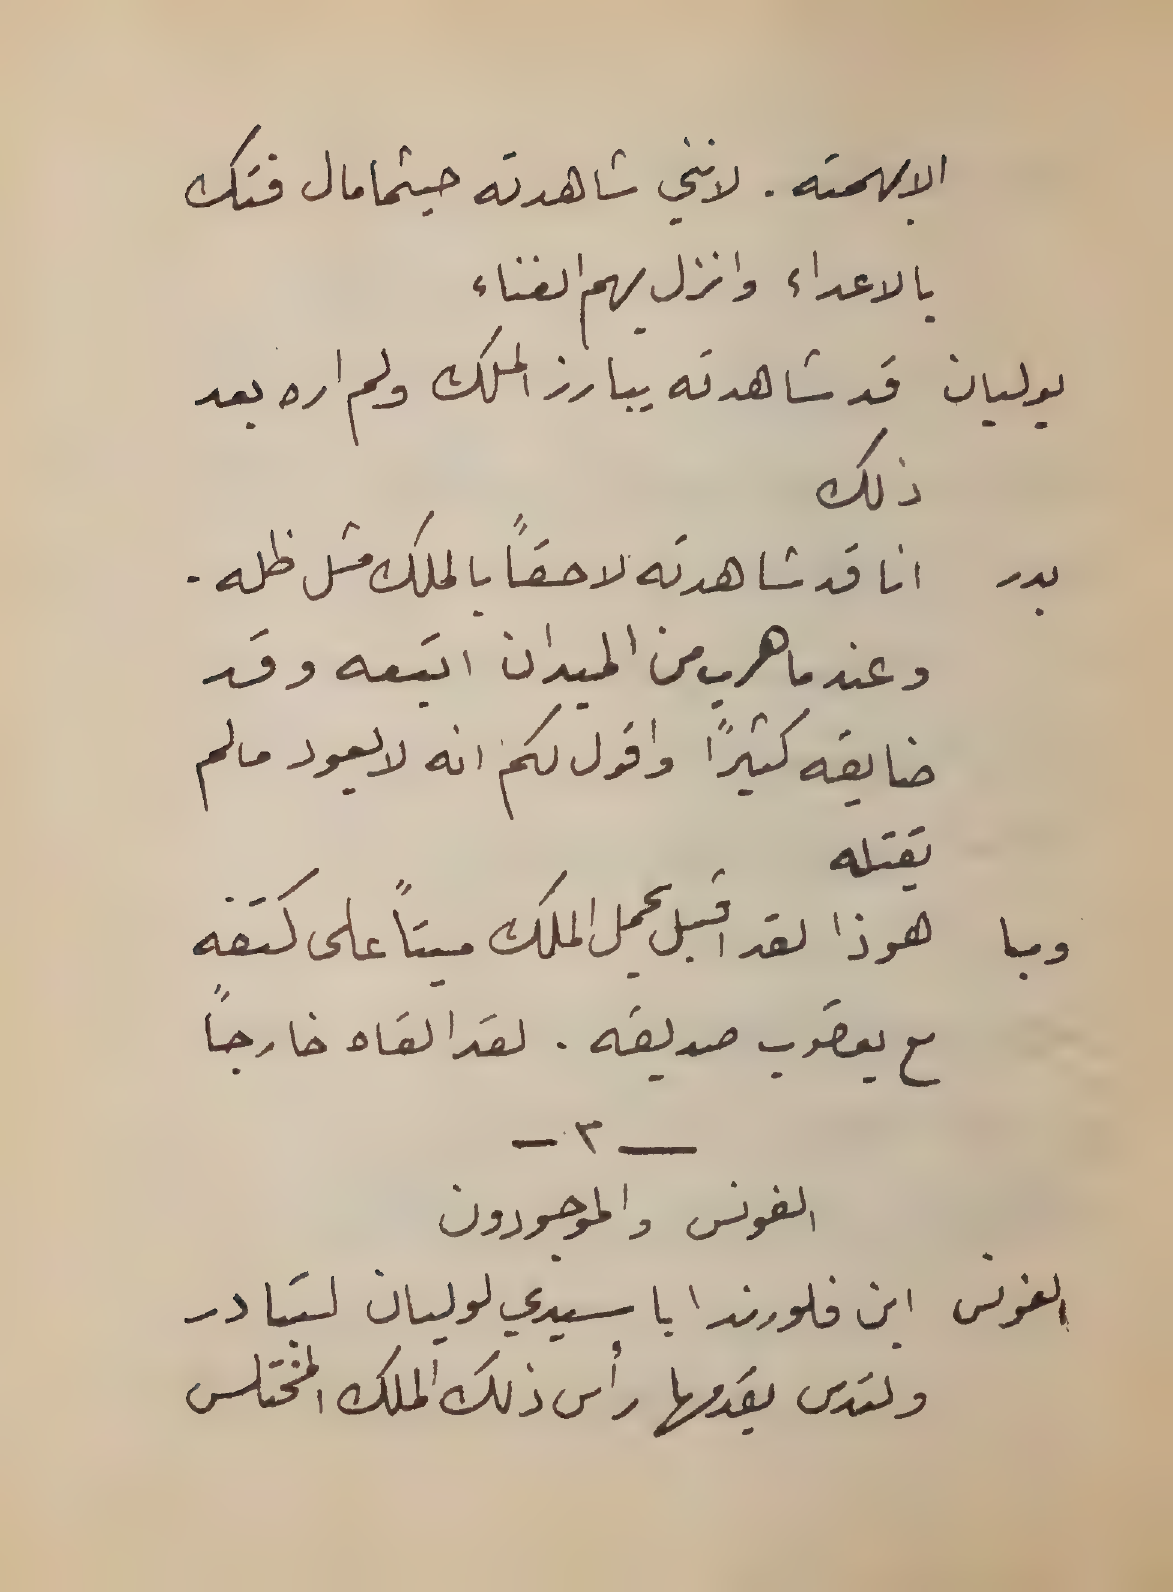 الا بهمته . لانني شاهدته حيثما مال فتك
بالاعداء وانزل بهم الفناء
يوليان قد شاهدته يبارز الملك ولم اره بعد
ذلك
بدر انا قد شاهدته لاحقاً بالملك مثل ظله .
وعندما هرب من الميدان اتبعه وقد
ضايقه كثيرًا واقول لكم انه لا يعود مالم
يقتله
وبا هوذا لقد اقبل يحمل الملك ميتاً على كتفه
مع يعقوب صديقه . لقد القاه خارجاً
— ٣ —
الفونس والموجودون
الفونس اين فلورندا يا سيدي يوليان لتبادر
ولتدس بقدمها رأس ذلك الملك المختلس